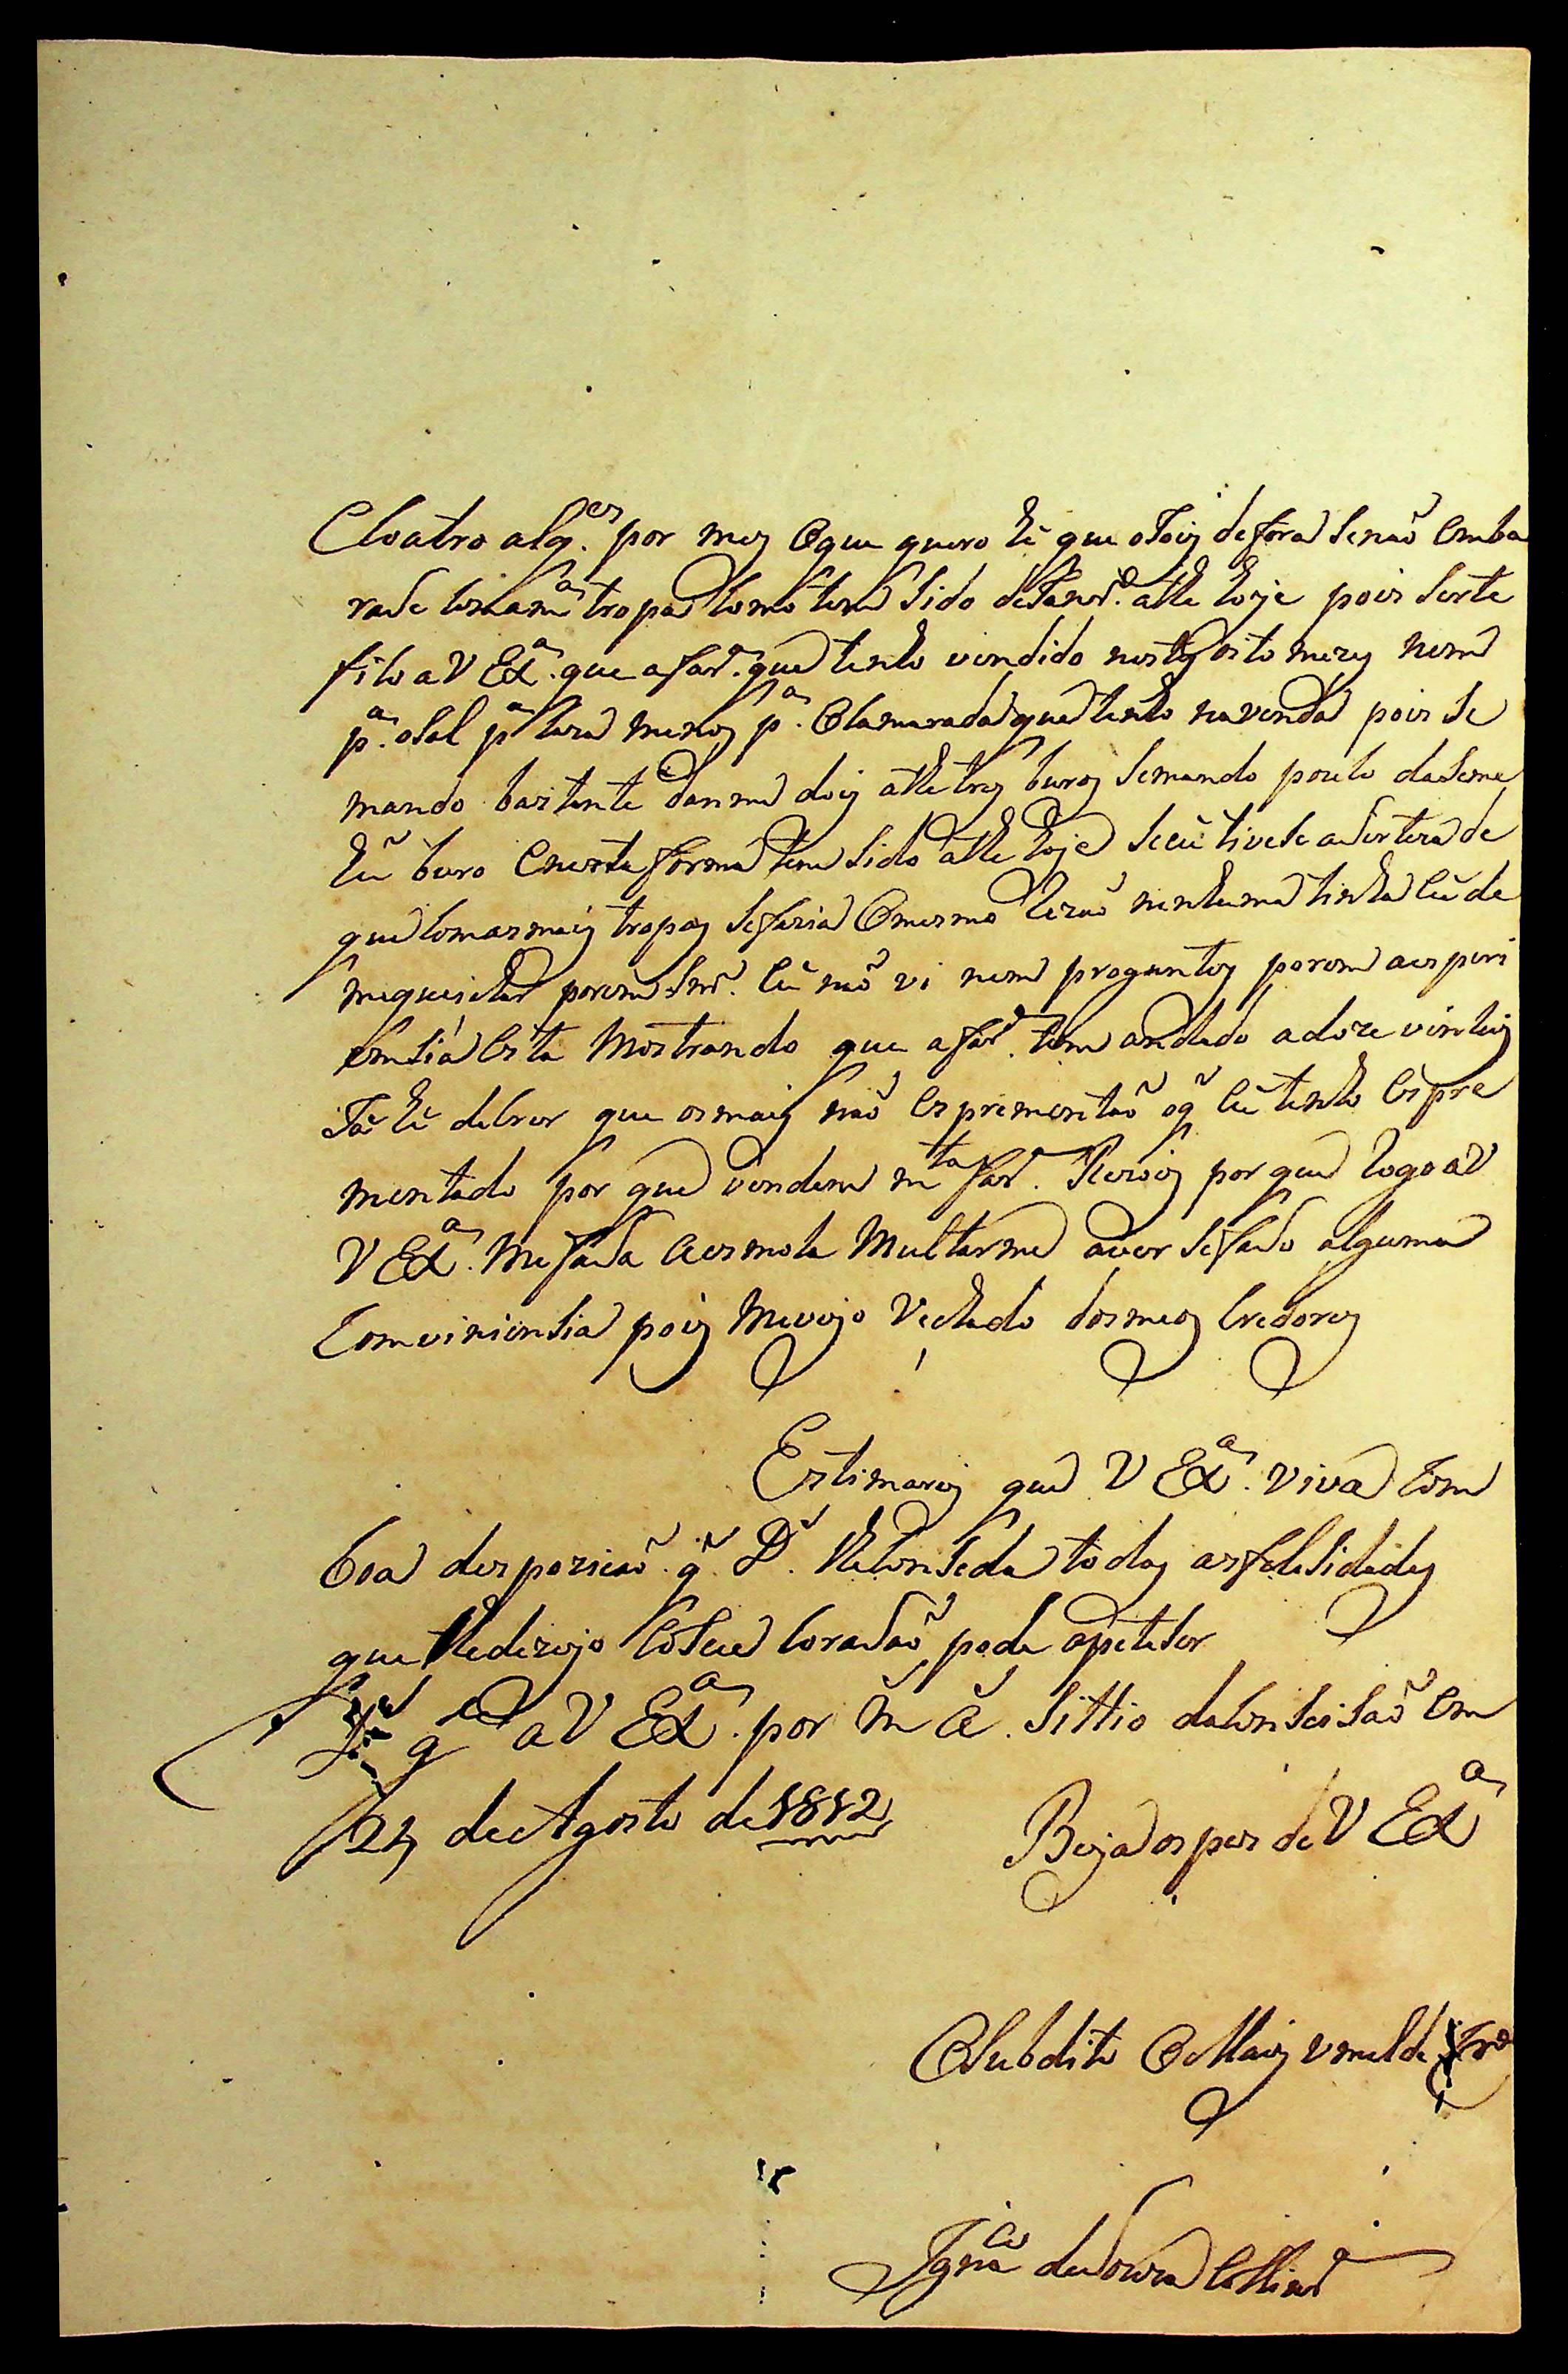 Coatro alq.es por mes Oque quero hê que oSois defora Senaõ Emba
raSe Com am.a tropa Como tem Sido athe hoje pois Serte
fico a V Ex.a que a far.a que tenho vendido nestes oito mezes nem
p.a oSal p.a Cara menos p.a Clamarada que tenho na venda pois Se
mando bastante danme dois athe tres buros Semando pouco daSeme
hũ buro Enesta forma tem Sido athe hoje Seeu tiveSe aSerteza de
que Com as mais tropas Sefazia Omesmo Rezaõ nenhuma tinha Eu de
mequeichar porem Snr. Eu naõ vi nem preguntei porem aespiri
emsia Esta Mostrando que a far.a tem andado adoze vinteis
Iá hê deCrer que osmais naõ Esprementaõ oq̃ Eu tenho Espre
mentado por que vendem m.ta far.a Rezois por que Rogo aV
V Ex.a MefaSa Aesmola Multarme aver SefaSo alguma
Comviniensia pois Mevejo Vechado dos meos Credores
Estimarei que V Ex.a viva Com
boa despozicaõ q̃ D.s lheConSeda todas asfeleSidades
que lhedezejo EoSeu CoraSaõ pode apeteSer
D.s g.de a V Ex.a por m. a. Sittio daConSeiSaõ Em
24 de Agosto de 1812
Beija os pes de V Ex.a
OSubdito Omais vmelde
Ign.co deSouza